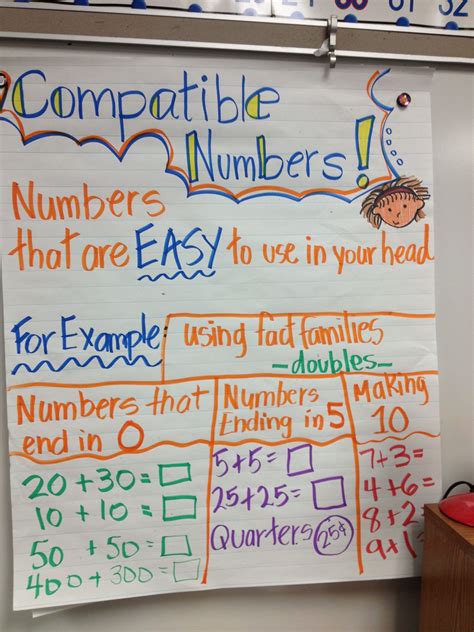 30 31 32
Compatible
Numbers!
Numbers
that are EASY to use in your head
For Example:
using fact families
-doubles-
Numbers that
end in 0
20 + 30 = □
10 + 10 = □
50 + 50 = □
400 + 300 = □
Numbers
Ending in 5
5 + 5 = □
25 + 25 = □
Quarters 25¢
Making
10
7 + 3 =
4 + 6 =
8 + 2
9 + 1